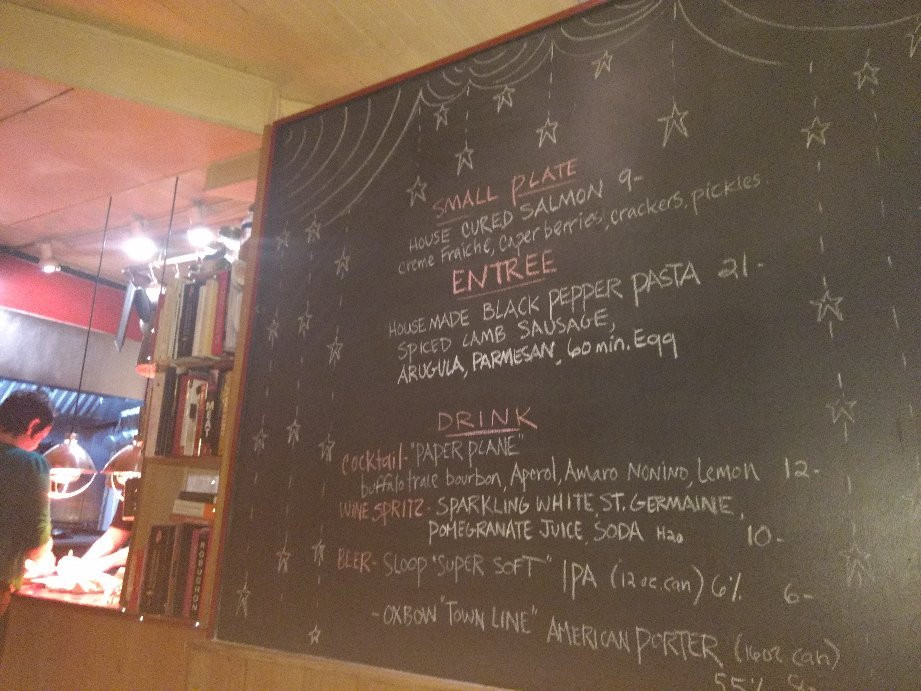 SMALL PLATE
HOUSE CURED SALMON 9-
creme Fraiche, caper berries, crackers, pickles
ENTREE
HOUSEMADE BLACK PEPPER PASTA 21-
SPICED LAMB SAUSAGE,
ARUGULA, PARMESAN, 60 min. Egg
DRINK
Cocktail- "PAPER PLANE"
buffalo trace bourbon, Aperol, Amaro NONINO, Lemon 12-
WINE SPRITZ- SPARKLING WHITE, ST. GERMAINE,
POMEGRANATE JUICE, SODA H2O 10-
BEER- SLOOP "SUPER SOFT" IPA (12 oz. can) 6% 6-
- OXBOW "TOWN LINE" AMERICAN PORTER (16oz can)
MEAT